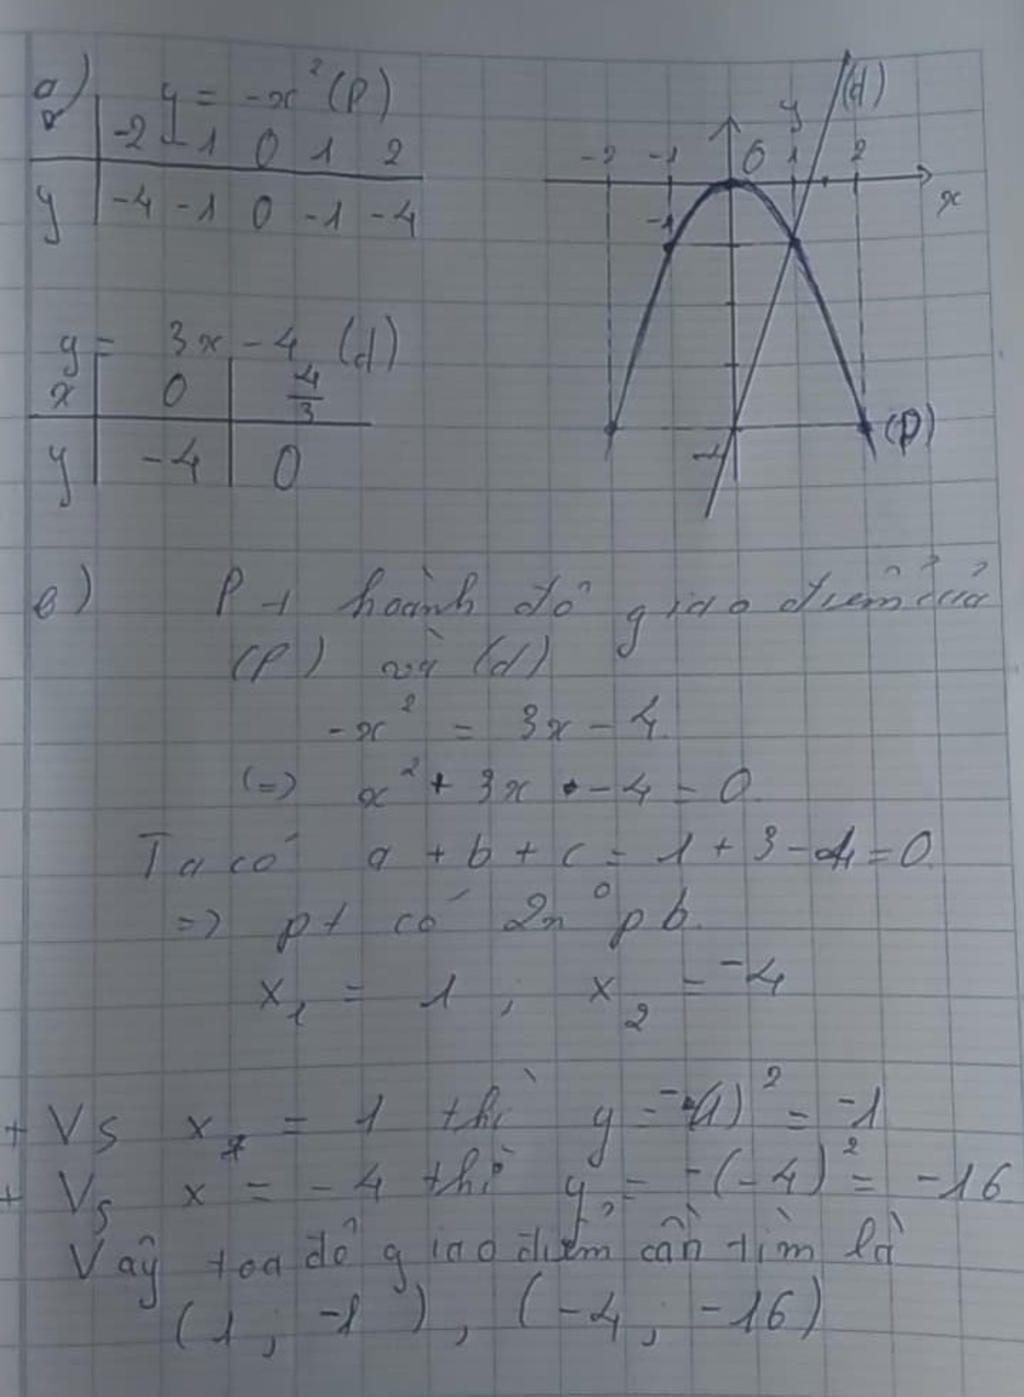 a) y = -x² (P)
x -2 -1 0 1 2
y -4 -1 0 -1 -4
y = 3x - 4 (d)
x 0 4/3
y -4 0
y (d)
-2 -1 0 1 2
x
-1
-4 (P)
b) Pt hoành độ giao điểm của
(P) và (d)
-x² = 3x - 4
(=) x² + 3x - 4 = 0
Ta có a + b + c = 1 + 3 - 4 = 0
=> pt có 2n⁰ pb.
x₁ = 1 ; x₂ = -4
+ Vs x = 1 thì y = -(1)² = -1
+ Vs x = -4 thì y = -(-4)² = -16
Vậy toạ độ giao điểm cần tìm là
(1 ; -1), (-4 ; -16)